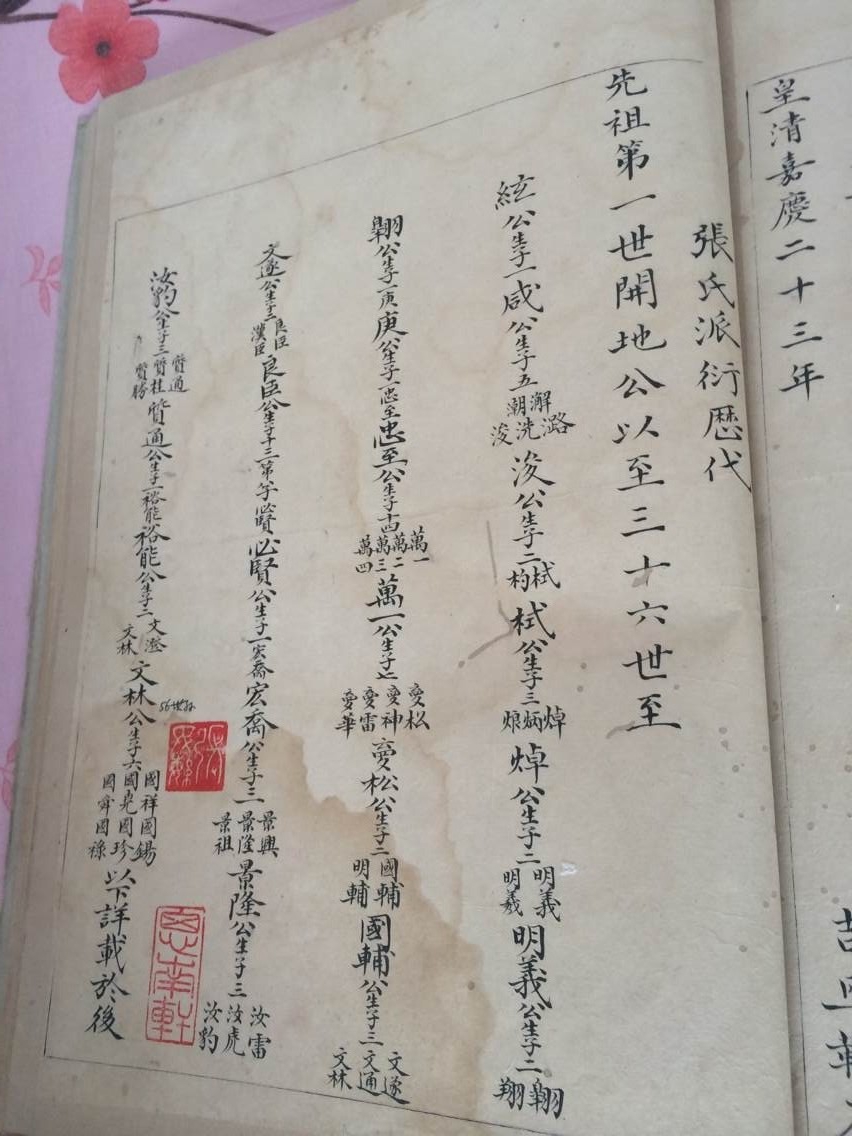 皇清嘉慶二十三年
張氏派衍歷代
先祖第一世開地公以至三十六世至
絃公生子一咸公生子五澥潞潮洗浚浚公生子二栻杓栻公生子三焯炳烺焯公生子二明義明羲明義公生子二翱翔
翱公生子一庚庚公生子一忠至忠至公生子十四萬一萬二萬三萬四萬一公生子七夔松夔神夔雷夔華夔松公生子二國輔明輔國輔公生子三文遂文通文林
文遂公生子二良臣漢臣良臣公生子十三第 必賢公生子一宏喬宏喬公生子三景興景隆景祖景隆公生子三汝雷汝虎汝豹
汝豹公生子三質通質桂質勝質通公生子一裕能裕能公生子二文澄文林文林公生子六國祥國錫國堯國珍國舜國祿以下詳載於後
張